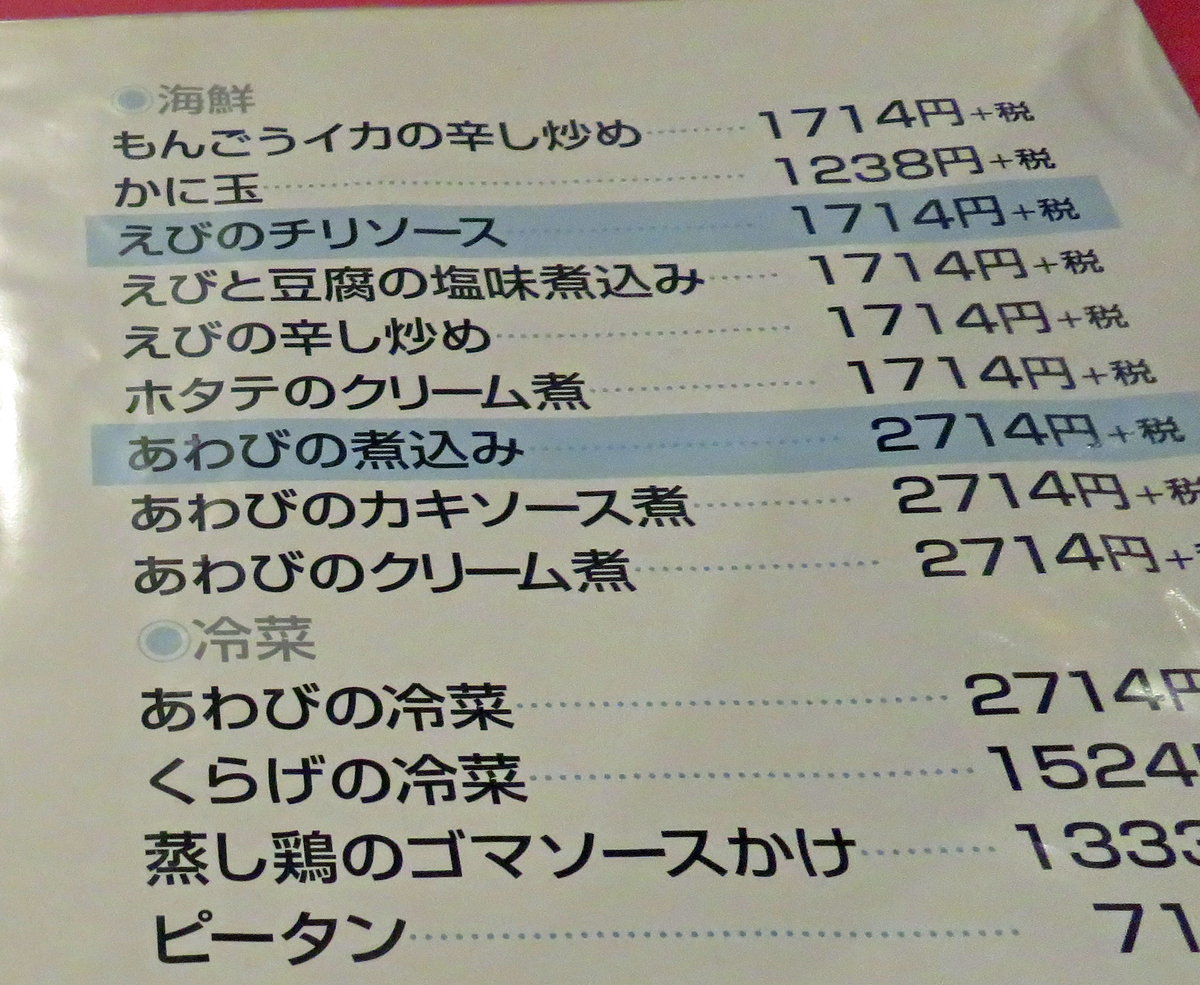 海鮮
もんごうイカの辛し炒め 1714円+税
かに玉 1238円+税
えびのチリソース 1714円+税
えびと豆腐の塩味煮込み 1714円+税
えびの辛し炒め 1714円+税
ホタテのクリーム煮 1714円+税
あわびの煮込み 2714円+税
あわびのカキソース煮 2714円+税
あわびのクリーム煮 2714円+
冷菜
あわびの冷菜 2714円
くらげの冷菜 1524
蒸し鶏のゴマソースかけ 1333
ピータン 71